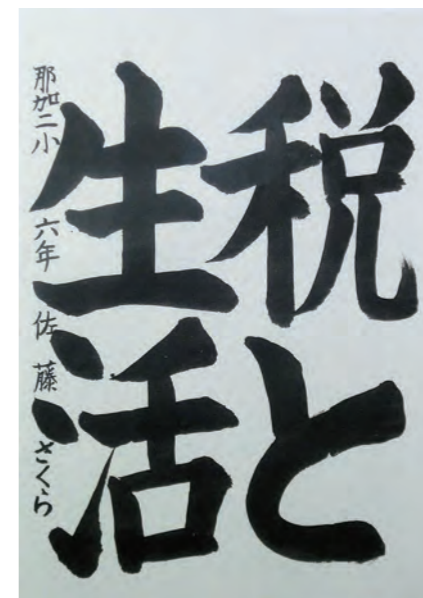 税と
生活
那加二小 六年 佐藤 さくら